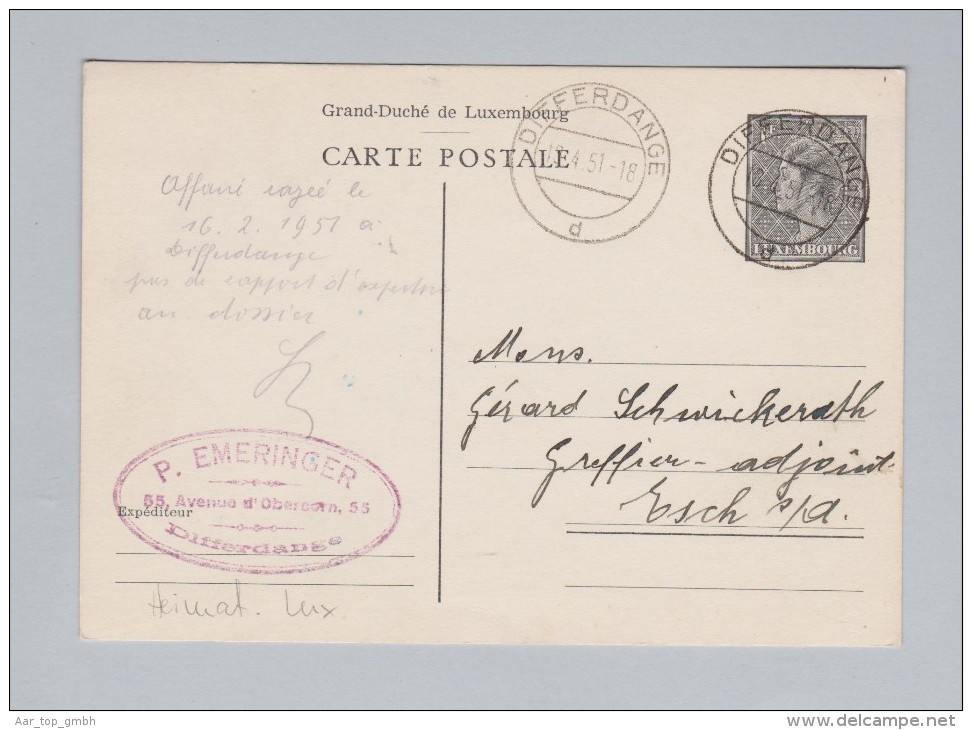 Grand-Duché de Luxembourg
CARTE POSTALE
DIFFERDANGE
.4.51-18
d
DIFFERDANGE
LUXEMBOURG
d
16. 2. 1951 à
Differdange
pas de rapport d'expertise
au dossier
Mons.
Gérard Schwickerath
Greffier-adjoint
Esch s/A.
P. EMERINGER
55, Avenue d'Obercorn, 55
Expéditeur
Differdange
Heimat. Lux
Aar_top_gmbh
www.delcampe.net